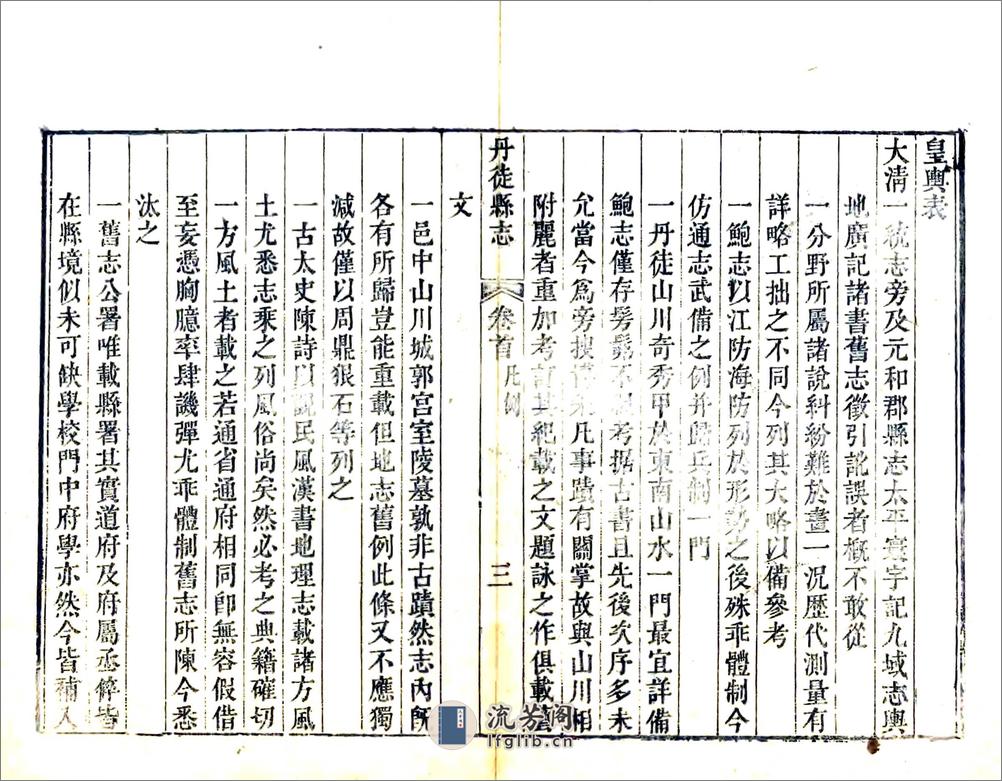 皇輿表
大清一統志旁及元和郡縣志太平寰宇記九域志輿
地廣記諸書舊志徵引訛誤者槪不敢從
一分野所屬諸說糾紛難於畫一况歷代測量有
詳略工拙之不同今列其大略以備參考
一鮑志以江防海防列於形勢之後殊乖體制今
仿通志武備之例并歸兵制一門
一丹徒山川奇秀甲於東南山水一門最宜詳備
鮑志僅存髣髴不考據古書且先後次序多未
允當今爲旁搜凡事蹟有關掌故與山川相
附麗者重加考訂其紀載之文題詠之作俱載
丹徒縣志 卷首 凡例 三
文
一邑中山川城郭宮室陵墓孰非古蹟然志內旣
各有所歸豈能重載但地志舊例此條又不應獨
減故僅以周鼎狠石等列之
一古太史陳詩以觀民風漢書地理志載諸方風
土尤悉志乘之列風俗尚矣然必考之典籍確切
一方風土者載之若通省通府相同卽無容假借
至妄憑胸臆率肆譏彈尤乖體制舊志所陳今悉
汰之
一舊志公署唯載縣署其實道府及府屬丞倅皆
在縣境似未可缺學校門中府學亦然今皆補入
流芳閣
lfglib.cn